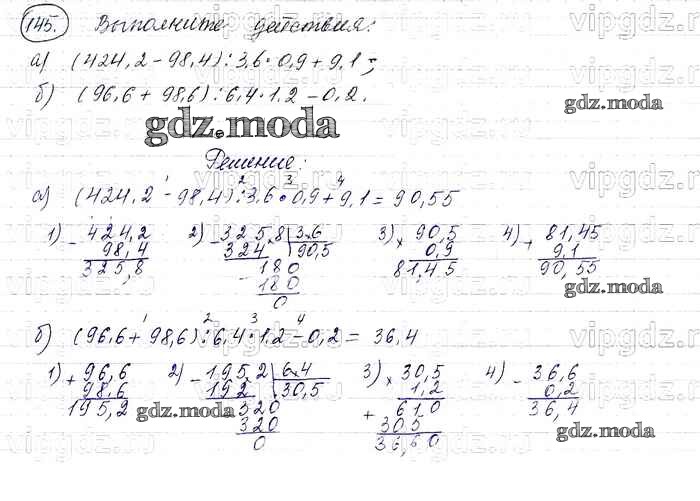 145. Выполните действия:
а) (424,2 - 98,4) : 3,6 · 0,9 + 9,1;
б) (96,6 + 98,6) : 6,4 · 1,2 - 0,2.
gdz.moda
gdz.moda
Решение:
1 2 3 4
а) (424,2 - 98,4) : 3,6 · 0,9 + 9,1 = 90,55
1) - 424,2 2) - 325,8 | 3,6 3) × 90,5 4) + 81,45
98,4 324 90,5 0,9 9,1
325,8 180 81,45 90,55
180
0
gdz.moda
1 2 3 4
б) (96,6 + 98,6) : 6,4 · 1,2 - 0,2 = 36,4
1) + 96,6 2) - 195,2 | 6,4 3) × 30,5 4) - 36,6
98,6 192 30,5 1,2 0,2
195,2 320 + 610 36,4
320 305
0 36,60
gdz.moda
gdz.moda
vipgdz.ru